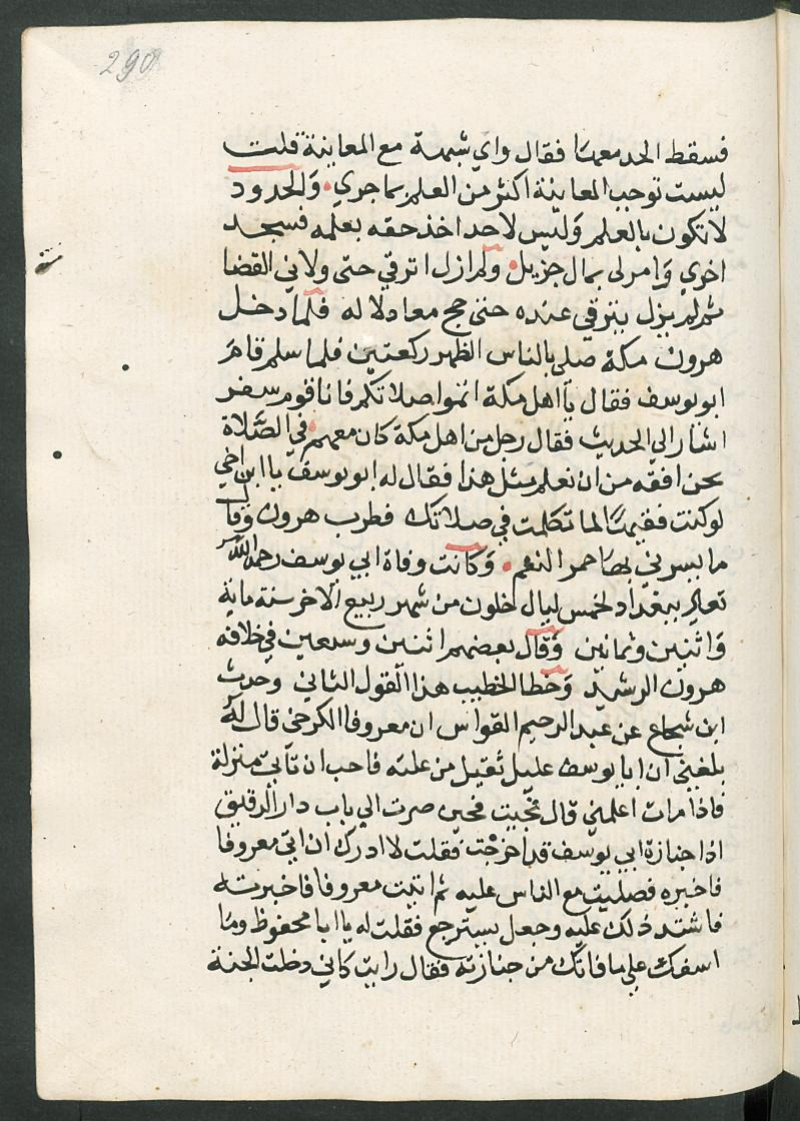 290
فسقط الحد معها فقال واي شبهة مع المعاينة قلت
ليست توجب المعاينة اكثر من العلم بما جري والحدود
لا تكون بالعلم وليس لاحد اخذ حقه بعلمه فسجد
اخري وامر لي بمال جزيل ولم ازل اترقي حتى ولاني القضا
ثم لم يزل يترقي عنده حتى حج معادلا له فلما دخل
هرون مكة صلى بالناس الظهر ركعتين فلما سلم قام
ابو يوسف فقال يا اهل مكة اتموا صلاتكم فانا قوم سفر
اشار الي الحديث فقال رجل من اهل مكة كان معهم في الصلاة
نحن افقه من ان نعلم مثل هذا فقال له ابو يوسف يا ابن اخي
لو كنت فقيها لما تكلمت في صلاتك فطرب هرون وقا
ما يسرني بها حمر النعم وكانت وفاة ابي يوسف رحمه الله
تعالي ببغداد لخمس ليال خلون من شهر ربيع الاخر سنة ماية
واثنين وثمانين وقال بعضهم اثنين وسبعين في خلافة
هرون الرشيد وخطا الخطيب هذا القول الثاني وحدث
ابن شجاع عن عبد الرحيم القواس ان معروفا الكرخي قال له
بلغني ان ابا يوسف عليل ثقيل من علته فاحب ان تاتي منزلة
فاذا مات اعلمني قال فجيت فحين صرت الي باب دار الرقيق
اذا جنازة ابي يوسف قد اخرجت فقلت لا ادرك ان اتي معروفا
فاخبره فصليت مع الناس عليه ثم اتيت معروفا فاخبرته
فاشتد ذلك عليه وجعل يسترجع فقلت له يا ابا محفوظ وما
اسفك على ما فاتك من جنازته فقال رايت كاني دخلت الجنة